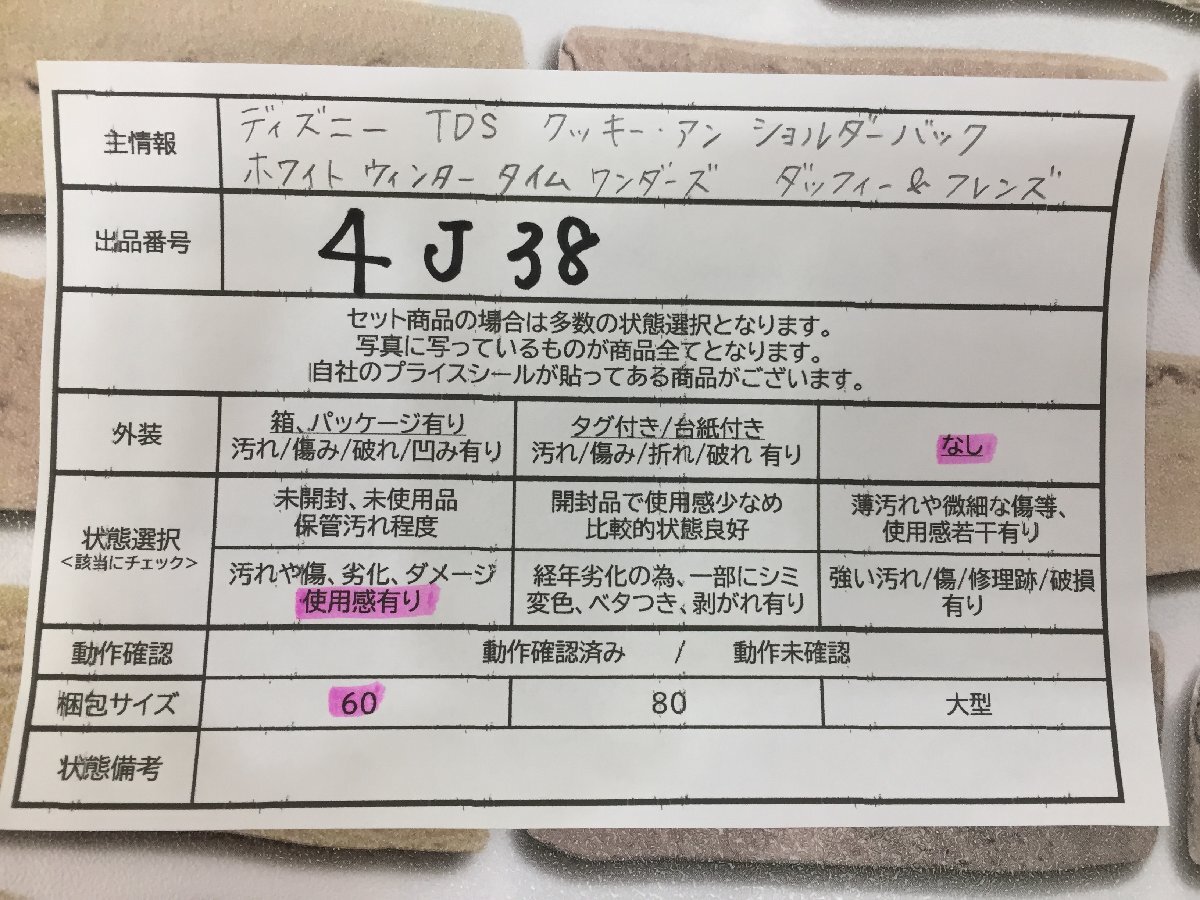 主情報
ディズニー TDS クッキー・アン ショルダーバック
ホワイト ウィンター タイム ワンダーズ ダッフィー & フレンズ
出品番号
4J38
セット商品の場合は多数の状態選択となります。
写真に写っているものが商品全てとなります。
自社のプライスシールが貼ってある商品がございます。
外装
箱、パッケージ有り
汚れ/傷み/破れ/凹み有り
タグ付き/台紙付き
汚れ/傷み/折れ/破れ 有り
なし
状態選択
<該当にチェック>
未開封、未使用品
保管汚れ程度
開封品で使用感少なめ
比較的状態良好
薄汚れや微細な傷等、
使用感若干有り
汚れや傷、劣化、ダメージ
使用感有り
経年劣化の為、一部にシミ
変色、ベタつき、剥がれ有り
強い汚れ/傷/修理跡/破損
有り
動作確認
動作確認済み / 動作未確認
梱包サイズ
60
80
大型
状態備考